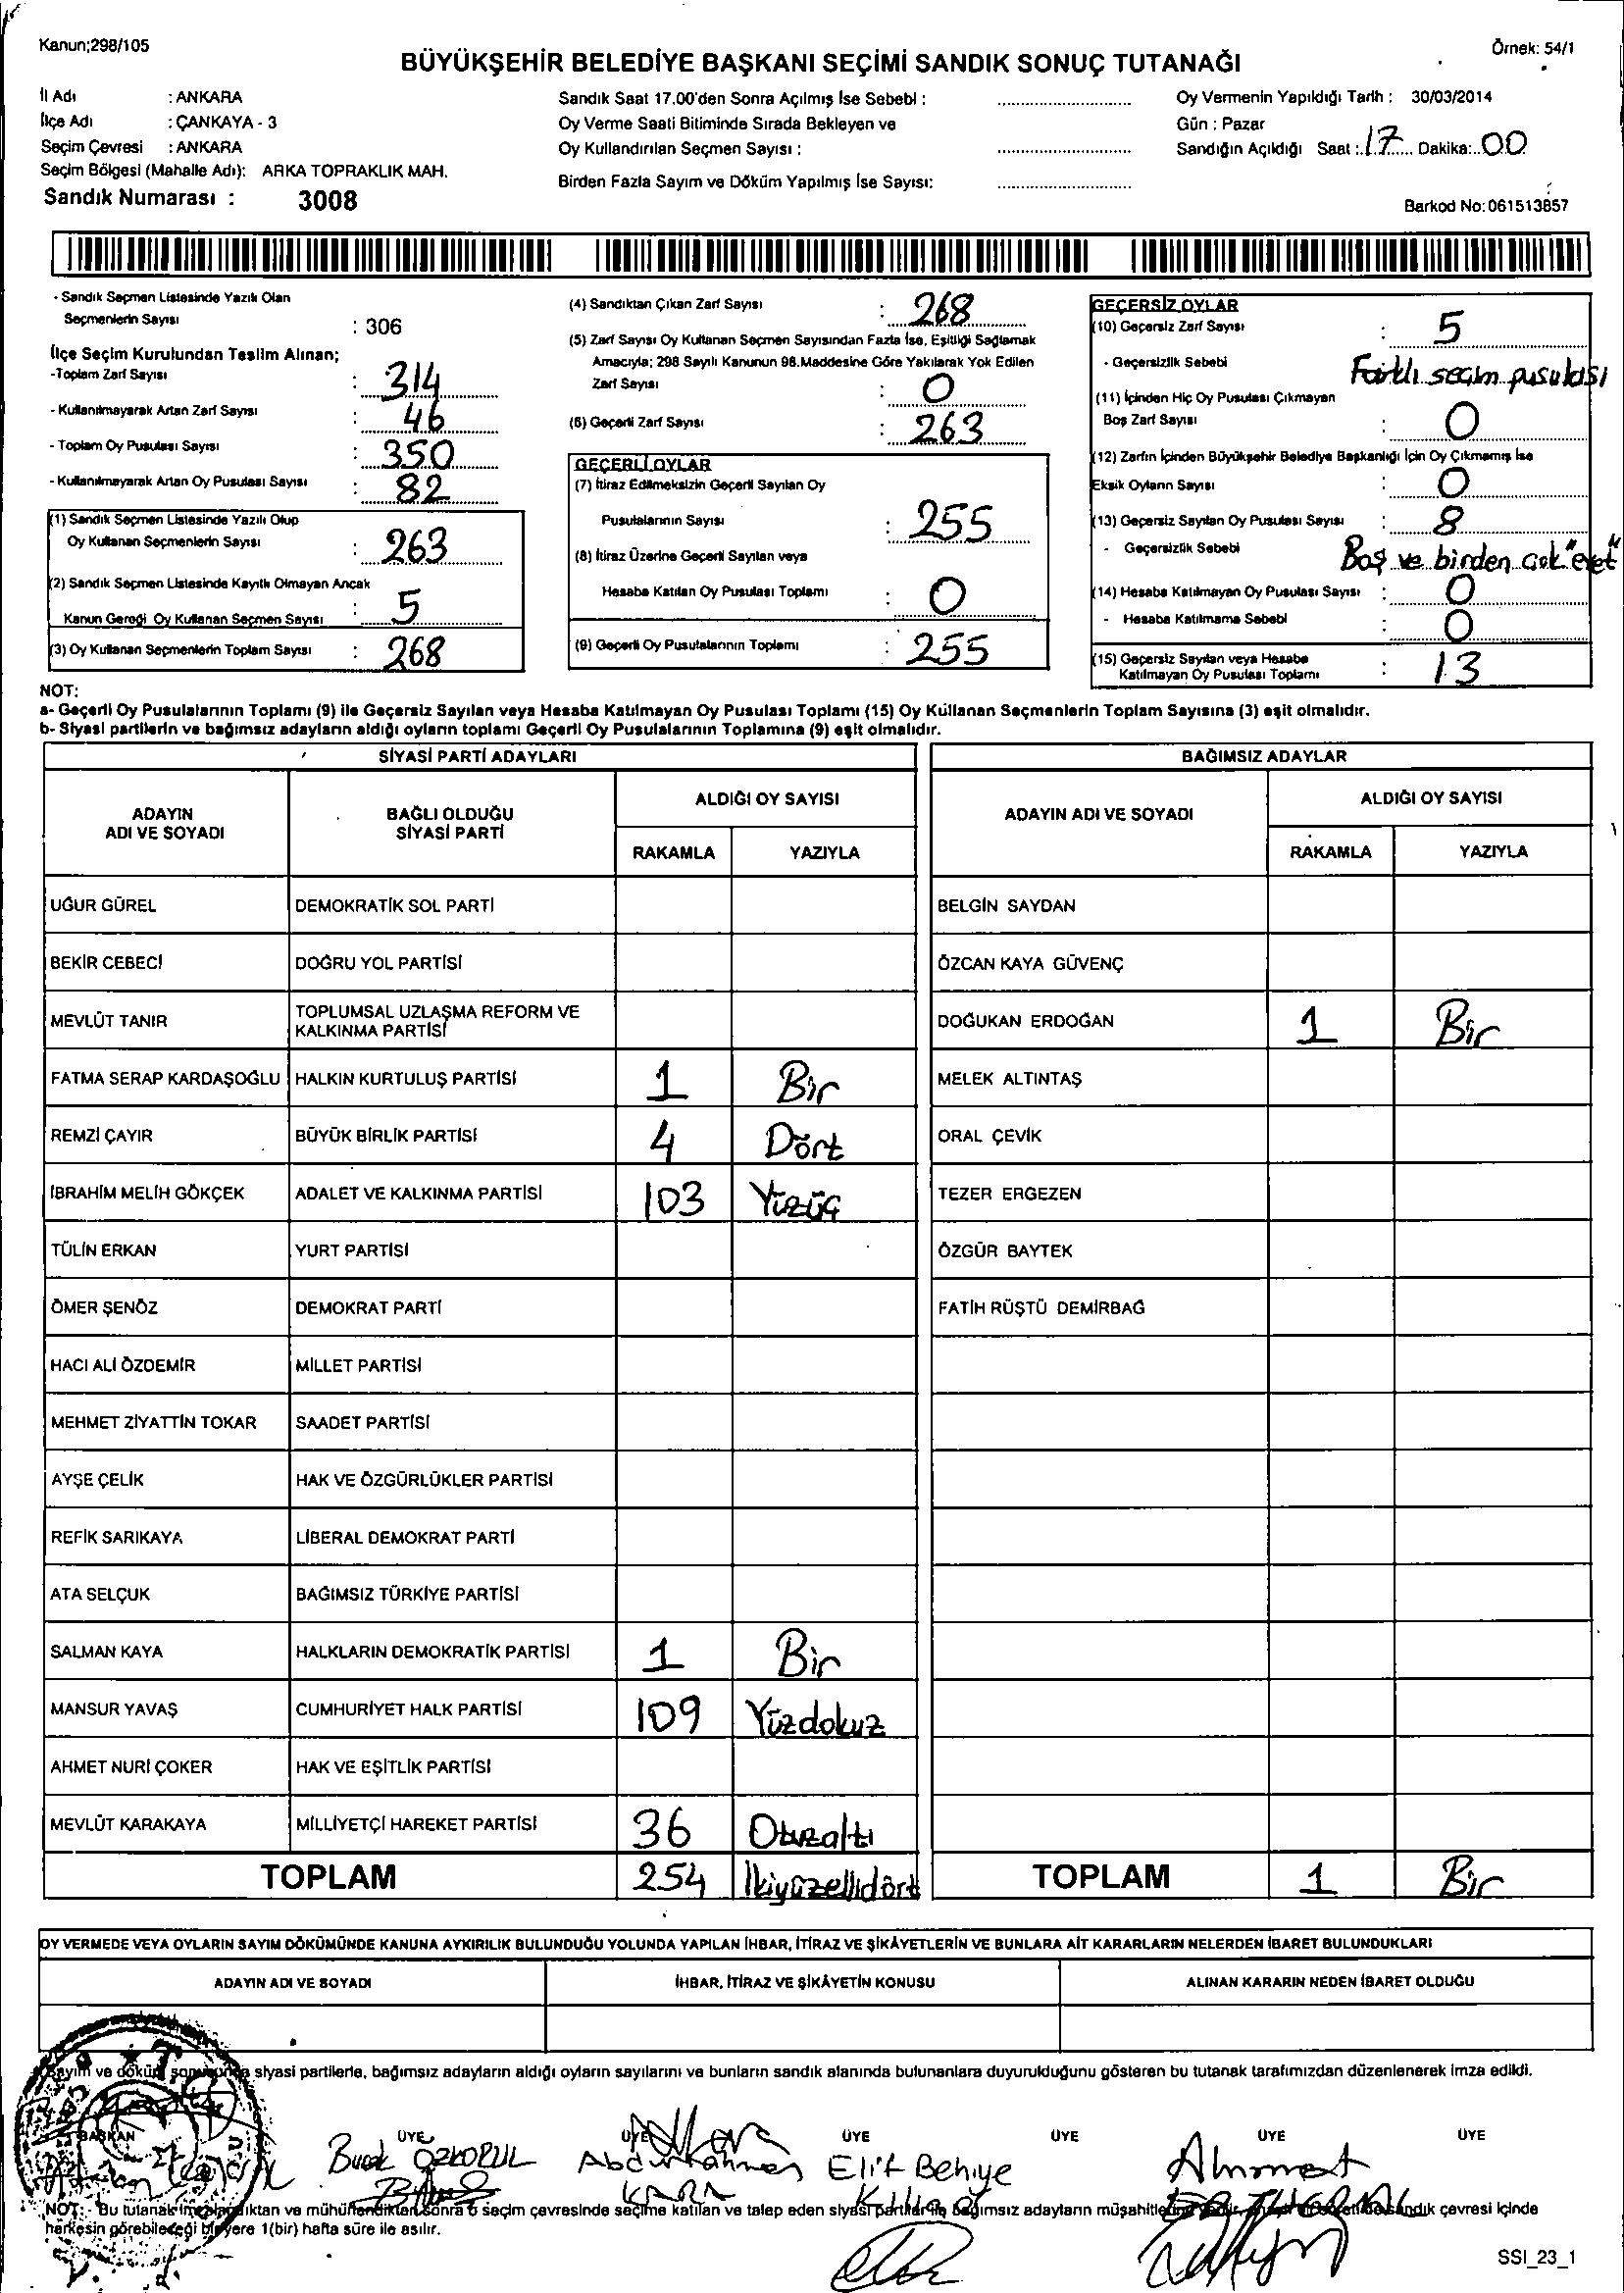 Kanun;298/105
Örnek: 54/1
BÜYÜKŞEHİR BELEDİYE BAŞKANI SEÇİMİ SANDIK SONUÇ TUTANAĞI
İl Adı : ANKARA
İlçe Adı : ÇANKAYA - 3
Seçim Çevresi : ANKARA
Seçim Bölgesi (Mahalle Adı): ARKA TOPRAKLIK MAH.
Sandık Numarası : 3008
Sandık Saat 17.00'den Sonra Açılmış İse Sebebi :
Oy Verme Saati Bitiminde Sırada Bekleyen ve
Oy Kullandırılan Seçmen Sayısı :
Birden Fazla Sayım ve Döküm Yapılmış İse Sayısı:
Oy Vermenin Yapıldığı Tarih : 30/03/2014
Gün : Pazar
Sandığın Açıldığı Saat : 17 Dakika: 00
Barkod No: 061513857
- Sandık Seçmen Listesinde Yazılı Olan
Seçmenlerin Sayısı : 306
İlçe Seçim Kurulundan Teslim Alınan;
-Toplam Zarf Sayısı : 314
- Kullanılmayarak Artan Zarf Sayısı : 46
- Toplam Oy Pusulası Sayısı : 350
- Kullanılmayarak Artan Oy Pusulası Sayısı : 82
(1) Sandık Seçmen Listesinde Yazılı Olup
Oy Kullanan Seçmenlerin Sayısı : 263
(2) Sandık Seçmen Listesinde Kayıtlı Olmayan Ancak
Kanun Gereği Oy Kullanan Seçmen Sayısı : 5
(3) Oy Kullanan Seçmenlerin Toplam Sayısı : 268
(4) Sandıktan Çıkan Zarf Sayısı : 268
(5) Zarf Sayısı Oy Kullanan Seçmen Sayısından Fazla İse, Eşitliği Sağlamak
Amacıyla; 298 Sayılı Kanunun 98.Maddesine Göre Yakılarak Yok Edilen
Zarf Sayısı : 0
(6) Geçerli Zarf Sayısı : 263
GEÇERLİ OYLAR
(7) İtiraz Edilmeksizin Geçerli Sayılan Oy
Pusulalarının Sayısı : 255
(8) İtiraz Üzerine Geçerli Sayılan veya
Hesaba Katılan Oy Pusulası Toplamı : 0
(9) Geçerli Oy Pusulalarının Toplamı : 255
GEÇERSİZ OYLAR
(10) Geçersiz Zarf Sayısı : 5
- Geçersizlik Sebebi Farklı seçim pusulası
(11) İçinden Hiç Oy Pusulası Çıkmayan
Boş Zarf Sayısı : 0
(12) Zarfın İçinden Büyükşehir Belediye Başkanlığı İçin Oy Çıkmamış İse
Eksik Oyların Sayısı : 0
(13) Geçersiz Sayılan Oy Pusulası Sayısı : 8
- Geçersizlik Sebebi Boş ve birden çok "evet"
(14) Hesaba Katılmayan Oy Pusulası Sayısı : 0
- Hesaba Katılmama Sebebi : 0
(15) Geçersiz Sayılan veya Hesaba
Katılmayan Oy Pusulası Toplamı : 13
NOT:
a- Geçerli Oy Pusulalarının Toplamı (9) ile Geçersiz Sayılan veya Hesaba Katılmayan Oy Pusulası Toplamı (15) Oy Kullanan Seçmenlerin Toplam Sayısına (3) eşit olmalıdır.
b- Siyasi partilerin ve bağımsız adayların aldığı oyların toplamı Geçerli Oy Pusulalarının Toplamına (9) eşit olmalıdır.
SİYASİ PARTİ ADAYLARI
ADAYIN ADI VE SOYADI BAĞLI OLDUĞU SİYASİ PARTİ ALDIĞI OY SAYISI
RAKAMLA YAZIYLA
UĞUR GÜREL DEMOKRATİK SOL PARTİ
BEKİR CEBECİ DOĞRU YOL PARTİSİ
MEVLÜT TANIR TOPLUMSAL UZLAŞMA REFORM VE KALKINMA PARTİSİ
FATMA SERAP KARDAŞOĞLU HALKIN KURTULUŞ PARTİSİ 1 Bir
REMZİ ÇAYIR BÜYÜK BİRLİK PARTİSİ 4 Dört
İBRAHİM MELİH GÖKÇEK ADALET VE KALKINMA PARTİSİ 103 Yüzüç
TÜLİN ERKAN YURT PARTİSİ
ÖMER ŞENÖZ DEMOKRAT PARTİ
HACI ALİ ÖZDEMİR MİLLET PARTİSİ
MEHMET ZİYATTİN TOKAR SAADET PARTİSİ
AYŞE ÇELİK HAK VE ÖZGÜRLÜKLER PARTİSİ
REFİK SARIKAYA LİBERAL DEMOKRAT PARTİ
ATA SELÇUK BAĞIMSIZ TÜRKİYE PARTİSİ
SALMAN KAYA HALKLARIN DEMOKRATİK PARTİSİ 1 Bir
MANSUR YAVAŞ CUMHURİYET HALK PARTİSİ 109 Yüzdokuz
AHMET NURİ ÇOKER HAK VE EŞİTLİK PARTİSİ
MEVLÜT KARAKAYA MİLLİYETÇİ HAREKET PARTİSİ 36 Otuzaltı
TOPLAM 254 İkiyüzellidört
BAĞIMSIZ ADAYLAR
ADAYIN ADI VE SOYADI ALDIĞI OY SAYISI
RAKAMLA YAZIYLA
BELGİN SAYDAN
ÖZCAN KAYA GÜVENÇ
DOĞUKAN ERDOĞAN 1 Bir
MELEK ALTINTAŞ
ORAL ÇEVİK
TEZER ERGEZEN
ÖZGÜR BAYTEK
FATİH RÜŞTÜ DEMİRBAĞ
TOPLAM 1 Bir
OY VERMEDE VEYA OYLARIN SAYIM DÖKÜMÜNDE KANUNA AYKIRILIK BULUNDUĞU YOLUNDA YAPILAN İHBAR, İTİRAZ VE ŞİKÂYETLERİN VE BUNLARA AİT KARARLARIN NELERDEN İBARET BULUNDUKLARI
ADAYIN ADI VE SOYADI İHBAR, İTİRAZ VE ŞİKÂYETİN KONUSU ALINAN KARARIN NEDEN İBARET OLDUĞU
Sayım ve döküm sonucunda siyasi partilerle, bağımsız adayların aldığı oyların sayılarını ve bunların sandık alanında bulunanlara duyurulduğunu gösteren bu tutanak tarafımızdan düzenlenerek imza edildi.
BAŞKAN ÜYE ÜYE ÜYE ÜYE ÜYE ÜYE
Burak ÖZKORUL Abdurrahman KARA Elif Behiye Ahmet
NOT:- Bu tutanak ve mühürlendikten sonra o seçim çevresinde seçime katılan ve talep eden siyasi partiler ile bağımsız adayların sandık çevresi içinde
herkesin görebileceği bir yere 1(bir) hafta süre ile asılır.
SSI_23_1